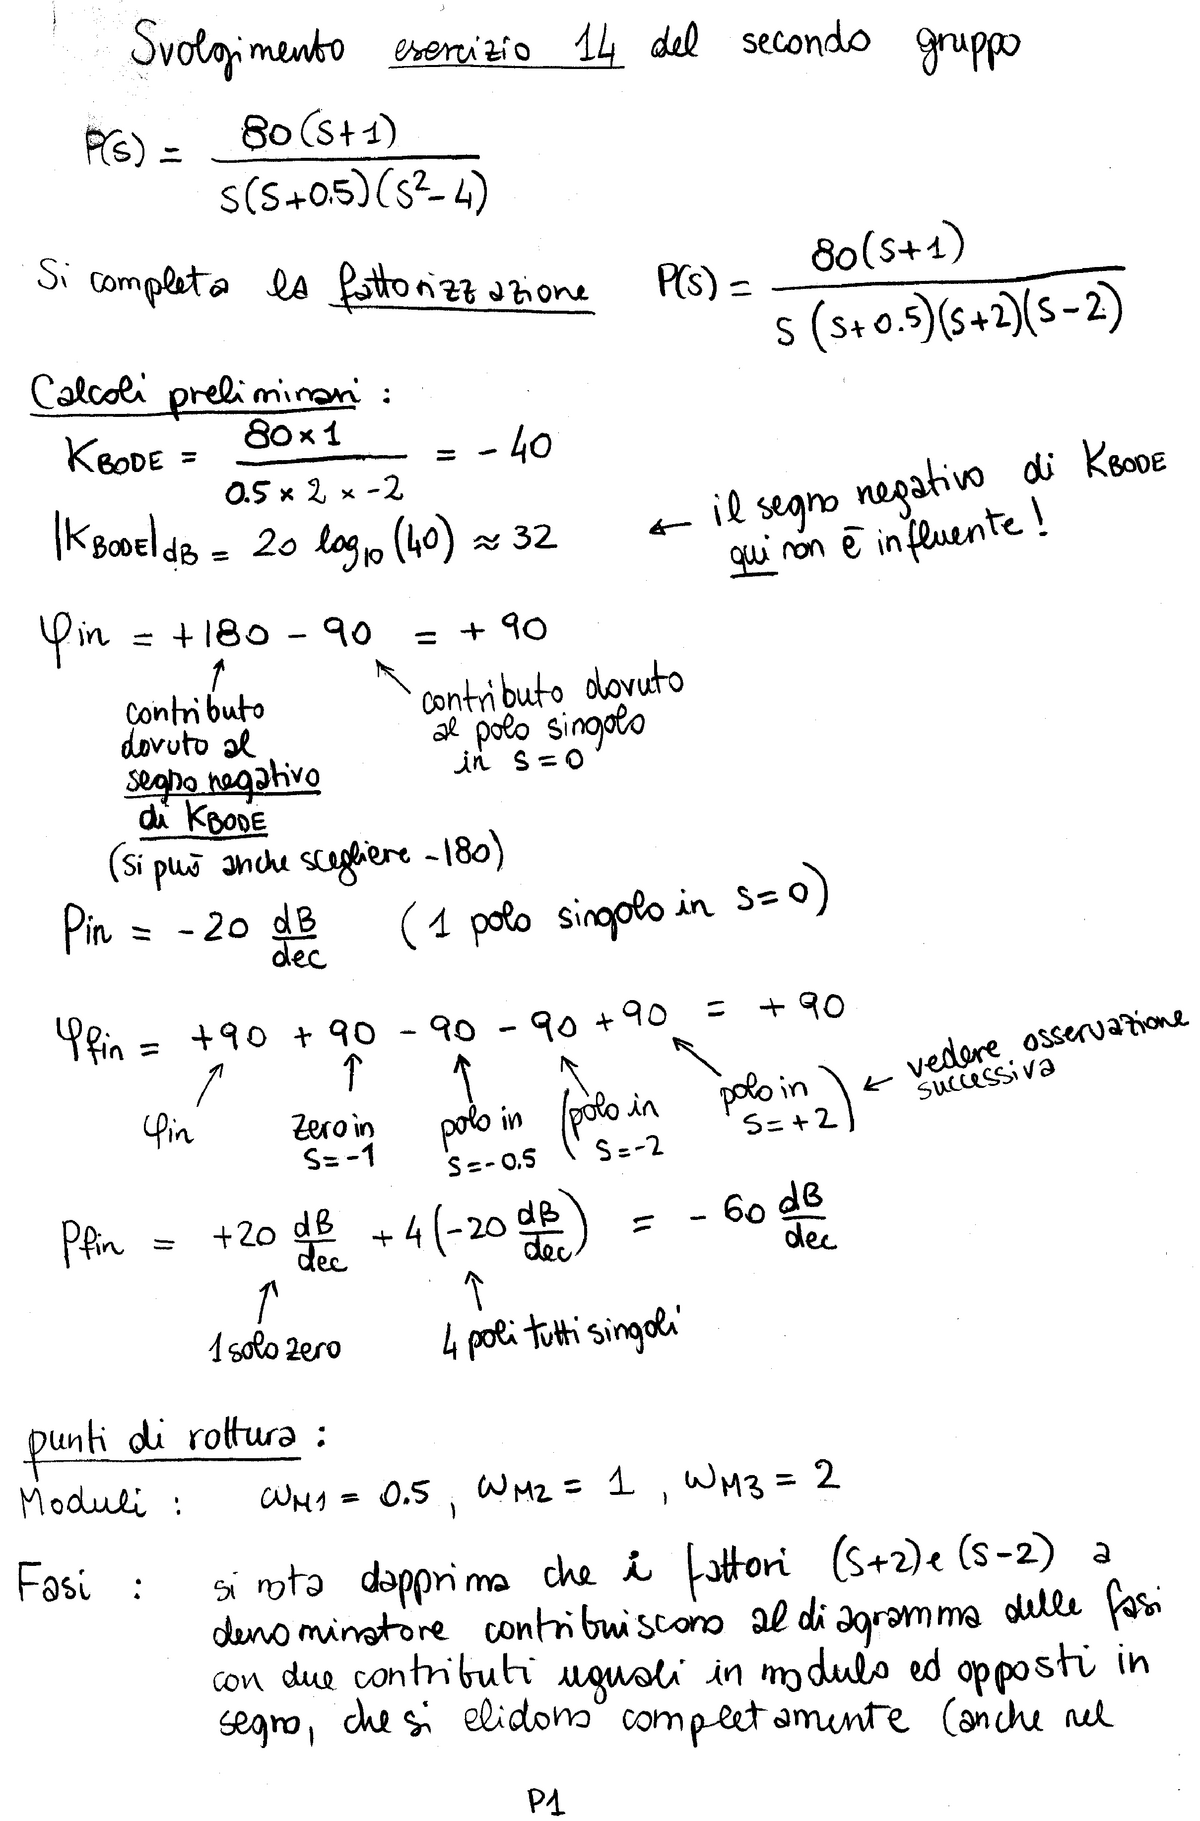 Svolgimento esercizio 14 del secondo gruppo
P(s) = 80(s+1) / s(s+0.5)(s²-4)
Si completa la fattorizzazione P(s) = 80(s+1) / s(s+0.5)(s+2)(s-2)
Calcoli preliminari :
KBODE = 80×1 / 0.5 × 2 × -2 = - 40
|KBODE|dB = 20 log10 (40) ≈ 32 ← il segno negativo di KBODE
qui non è influente !
φin = +180 - 90 = + 90
contributo dovuto al segno negativo di KBODE
(si può anche scegliere -180)
contributo dovuto
al polo singolo
in s=0
Pin = -20 dB/dec (1 polo singolo in s=0)
φfin = +90 + 90 - 90 - 90 + 90 = + 90
φin
zero in
s=-1
polo in
s=-0.5
(polo in
s=-2
polo in
s=+2)
← vedere osservazione
successiva
Pfin = +20 dB/dec + 4(-20 dB/dec) = - 60 dB/dec
1 solo zero
4 poli tutti singoli
punti di rottura :
Moduli : ωM1 = 0.5, ωM2 = 1, ωM3 = 2
Fasi : si nota dapprima che i fattori (s+2) e (s-2) a
denominatore contribuiscono al diagramma delle fasi
con due contributi uguali in modulo ed opposti in
segno, che si elidono completamente (anche nel
P1